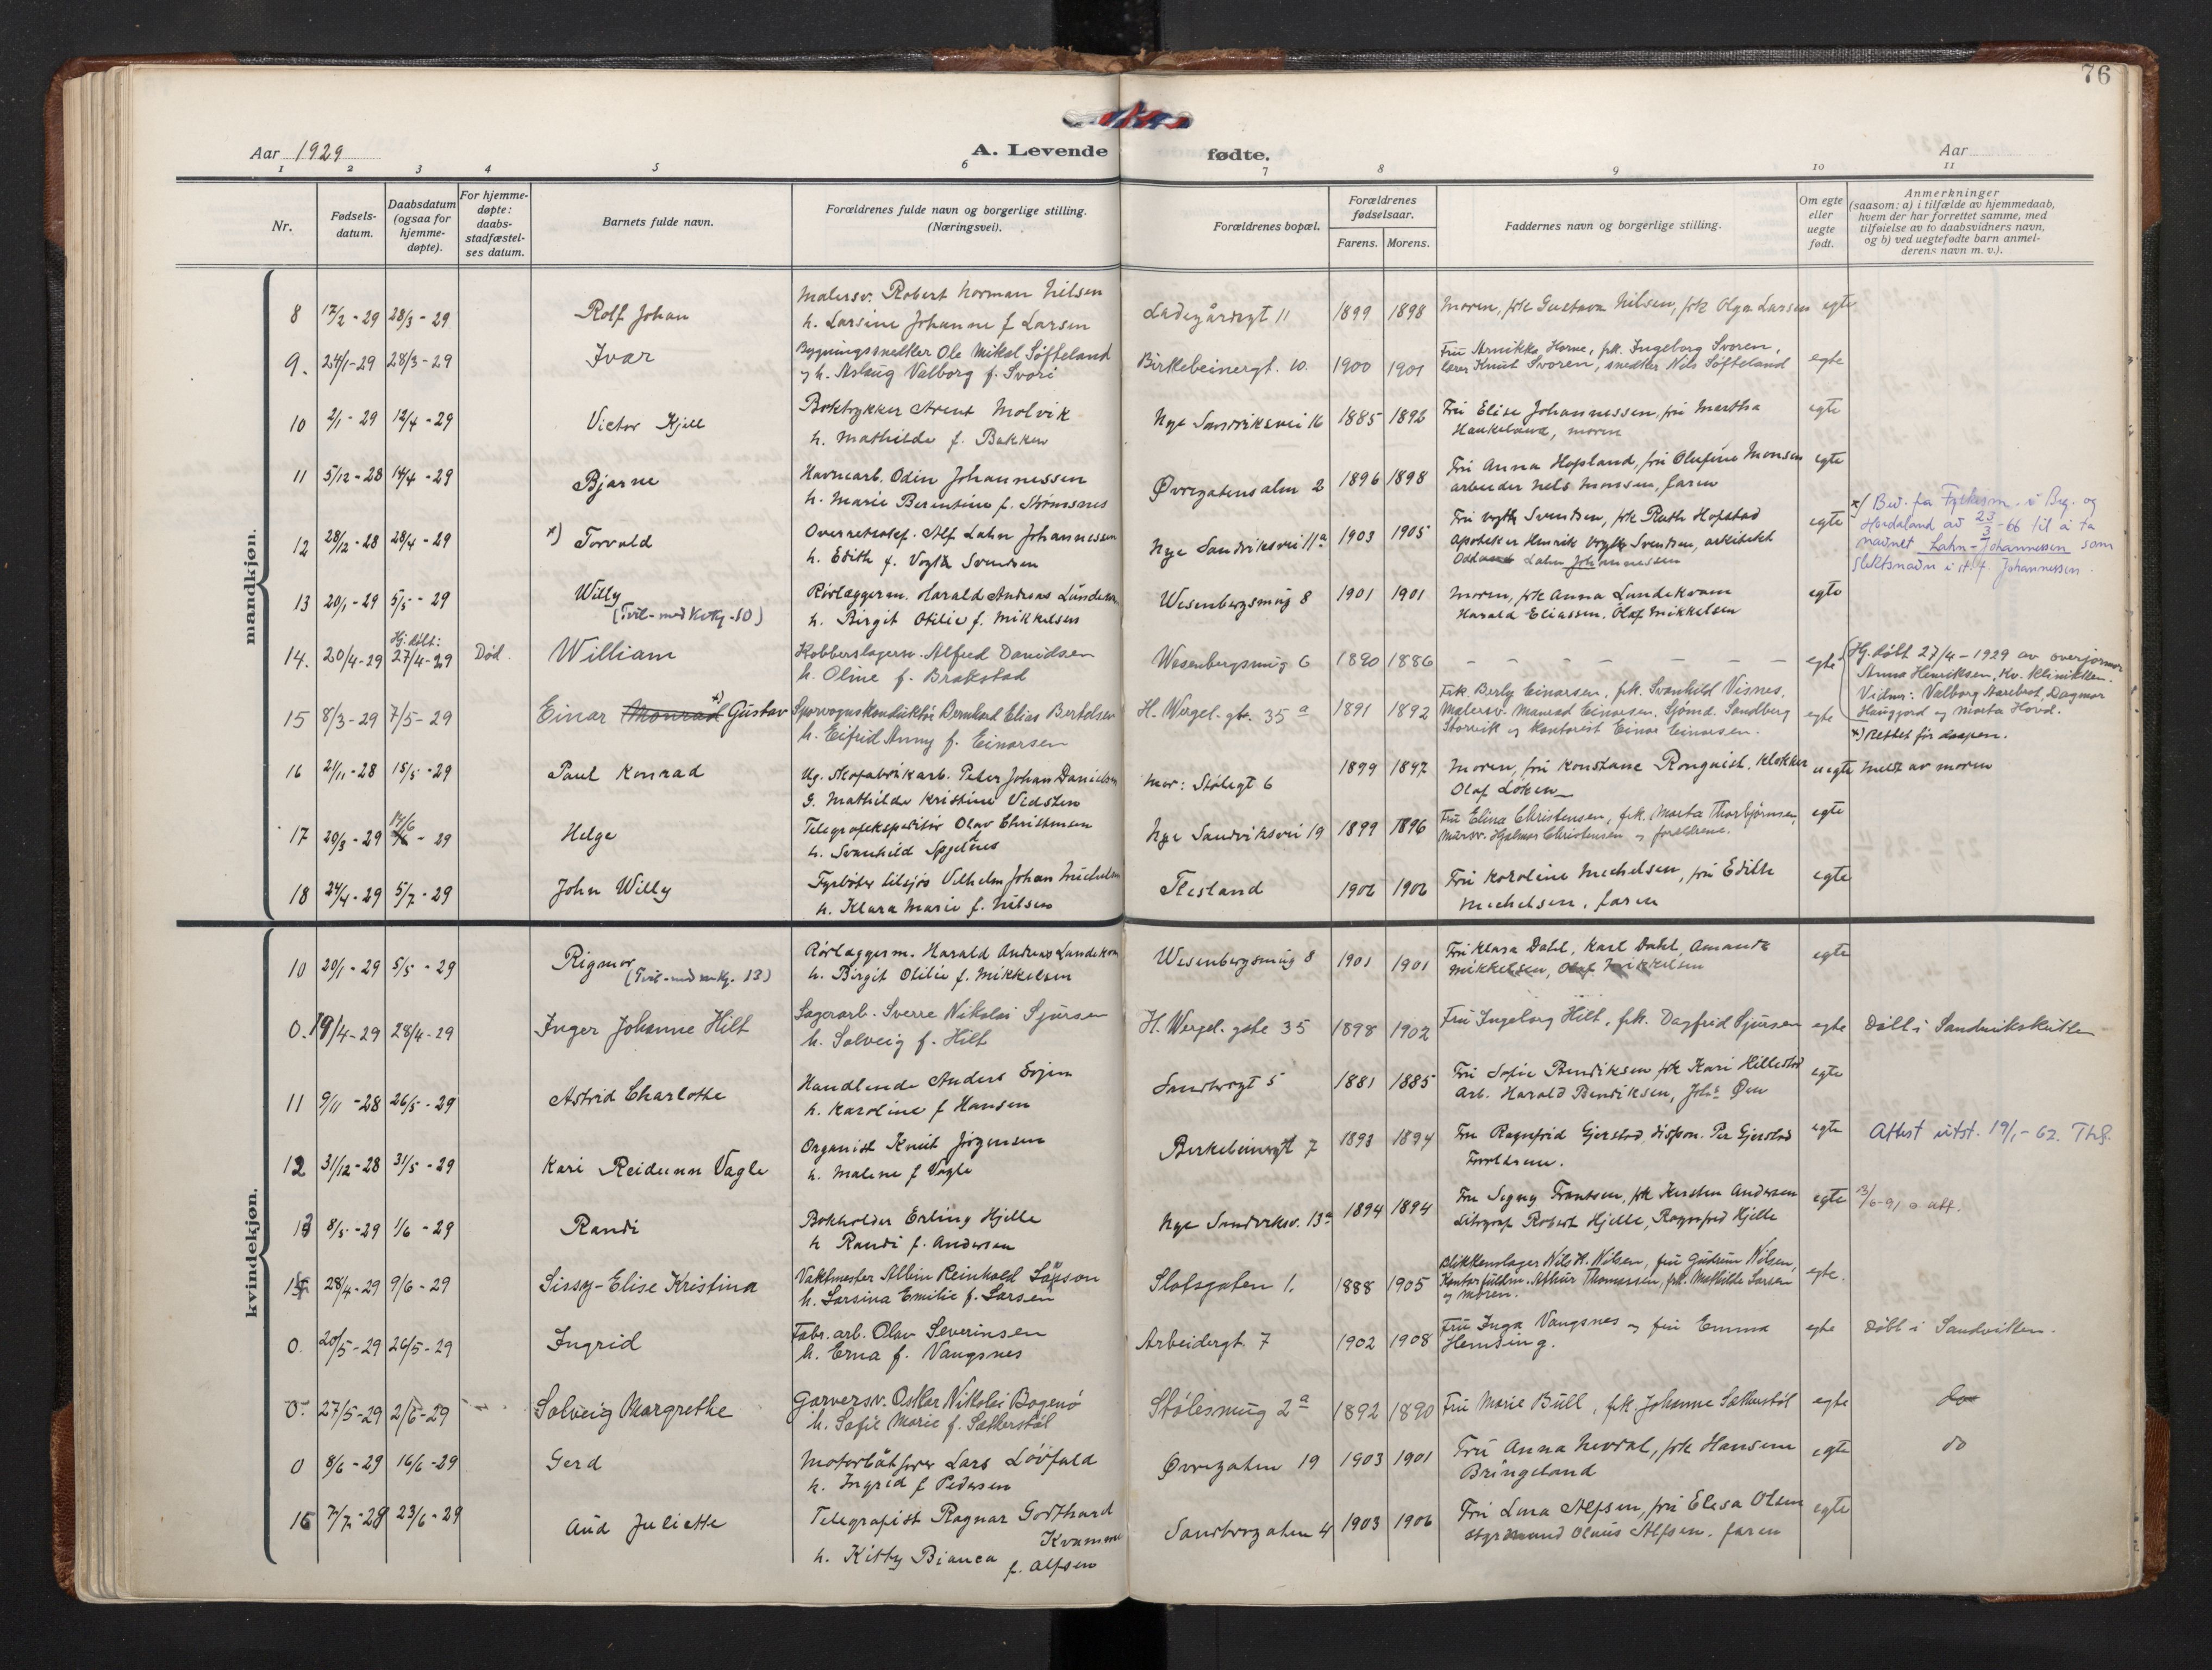 76
Aar 1929
A. Levende fødte.
Aar
1 2 3 4 5 6 7 8 9 10 11
Nr.
Fødsels-
datum.
Daabsdatum
(ogsaa for
hjemme-
døpte).
For hjemme-
døpte:
daabs-
stadfæstel-
ses datum.
Barnets fulde navn.
Forældrenes fulde navn og borgerlige stilling.
(Næringsvei).
Forældrenes bopæl.
Forældrenes
fødselsaar.
Farens. Morens.
Faddernes navn og borgerlige stilling.
Om egte
eller
uegte
født.
Anmerkninger
(saasom: a) i tilfælde av hjemmedaab,
hvem der har forrettet samme, med
tilføielse av to daabsvidners navn,
og b) ved uegtefødte barn anmel-
derens navn m. v.).
mandkjøn.
8 17/2-29 28/3-29 Rolf Johan
Malersv. Robert Norman Nilsen
h. Larsine Johanne f Larsen
Ladegårdsgt 11 1899 1898
Moren, frk Gustava Nilsen, frk Olga Larsen egte
9. 24/1-29 28/3-29 Ivar
Bygningssnedker Ole Mikal Søfteland
og h. Aslaug Valborg f. Svori
Birkebeinergt. 10. 1900 1901
Fru Arnikka Horne, frk. Ingeborg Svoren,
lærer Knut Svoren, snedker Nils Søfteland egte
10 2/1-29 12/4-29 Victor Kjell
Boktrykker Arent Molvik
h. Mathilde f. Bakken
Nye Sandviksvei 16 1885 1892
Fru Elise Johannessen, fru Martha
Haukeland, moren egte
11 5/12-28 14/4-29 Bjarne
Havnearb. Odin Johannessen
h. Marie Berentine f. Strømsnes
Øvregatensalm 2 1896 1898
Fru Anna Hopland, fru Olufine Monsen
arbeider Nels Monsen, faren egte
12 28/12-28 28/4-29 x) Torvald
Overretssakf. Alf Lahn Johannessen
h. Edith f. Vogth Svendsen
Nye Sandviksvei 11a 1903 1905
Fru Vogth Svendsen, frk Ruth Hopstad
Apotheker Henrik Vogth Svendsen, arkitekt
Lahn Johannessen egte
x) Bev. fra Fylkesm. i Brg. og
Hordaland av 23/3-66 til å ta
navnet Lahn-Johannessen som
slektsnavn i st. f. Johannessen.
13 20/1-29 5/5-29 Willy
(Tvil-med Kvkj.-10)
Rørlæggerm. Harald Andreas Lundekvam
h. Birgit Otilie f. Mikkelsen
Wesenbergsmug 8 1901 1901
Moren, frk Anna Lundekvam
Harald Eliassen, Olaf Mikkelsen egte
14. 20/4-29 Hj. døbt: 27/4-29 Død. William
Kobberslagersv. Alfred Davidsen
h. Oline f. Brakstad
Wesenbergsmug 6 1890 1886 - - - - - - - egte
Hj. døbt 27/4-1929 av overjormor
Anna Henriksen, Kv. Klinikken.
Vidner: Valborg Aarebrot, Dagmar
Haugjord og Marta Hovd.
15 8/3-29 7/5-29 Einar Monrad x) Gustav
Sporvognskonduktør Bernhard Elias Bertelsen
h. Eifrid Anny f. Einarsen
H. Wergel. gt. 35 a 1891 1892
Frk. Berly Einarsen, frk. Svanhild Visnes,
Malersv. Monrad Einarsen, Sjømd. Sandberg
Storvik og kontorist Einar Einarsen. egte
x) Rettet før daapen.
16 2/11-28 15/5-29 Paul Konrad
Ug. Skofabrikarb. Peder Johan Danielsen
G. Mathilde Kristine Vedsten
Mor: Stølegt 6 1899 1897
Moren, fru Konstanse Ronquist, klokker
Olaf Loken uegte Meldt av moren
17 20/3-29 14/6-29 Helge
Telegrafekspeditør Olav Christensen
h. Svanhild Spjelnes
Nye Sandviksvei 19 1899 1896
Fru Elina Christensen, frk. Marta Thorbjørnsen,
Mursv. Hjalmar Christensen og forældrene. egte
18 24/4-29 5/7-29 John Willy
Fyrbøter tilsjøs Vilhelm Johan Michelsen
h. Klara Marie f. Nilsen
Flesland 1906 1906
Fru Karoline Michelsen, fru Edith
Michelsen, faren egte
kvindekjøn.
10 20/1-29 5/5-29 Rigmor
(Tvil-med mkj. 13)
Rørlæggerm. Harald Andreas Lundekvam
h. Birgit Otilie f. Mikkelsen
Wesenbergsmug 8 1901 1901
Fru Klara Dahl, Karl Dahl, Amanda
Mikkelsen, Olaf Mikkelsen egte
0. 19/4-29 28/4-29 Inger Johanne Hilt
Lagerarb. Sverre Nikolai Sjursen
h. Solveig f. Hilt
H. Wergel. gate 35 1898 1902
Fru Ingeborg Hilt, frk. Dagfrid Sjursen egte Døbt i Sandvikskirken
11 9/11-28 26/5-29 Astrid Charlotte
Handlende Anders Evjen
h. Karoline f Hansen
Sandbrogt 5 1881 1885
Fru Sofie Bendiksen frk Kari Hillestad
Arb. Harald Bendiksen, Johs Øen egte
12 31/12-28 31/5-29 Kari Reidunn Vagle
Organist Knut Jørgensen
h. Malene f Vagle
Birkebeinergt 7 1893 1894
Fru Ragnfrid Gjerstad, dispon. Per Gjerstad
Foreldrene. egte Attest utst. 19/1-62. ThS.
13 8/5-29 1/6-29 Randi
Bokholder Erling Hjelle
h Randi f. Andersen
Nye Sandviksv. 13a 1894 1894
Fru Signy Frantsen, frk Kirsten Andersen
Litograf Robert Hjelle, Ragnfrid Hjelle egte 13/6-91 a att.
14 28/4-29 9/6-29 Sissy-Elise Kristina
Vaktmester Albin Reinhold
h. Larsina Emilie f. Larsen
Slotsgaten 1. 1888 1905
Blikkenslager Nils H. Nilsen, fru Gudrun Nilsen,
Kontorfuldm. Arthur Thomassen, frk. Mathilde Larsen
og moren. egte.
0. 20/5-29 26/5-29 Ingrid
Fabr. arb. Olav Severinsen
h. Erna f. Vangsnes
Arbeidergt. 7 1902 1908
Fru Inga Vangsnes og fru Emma
Hemsing. egte Døbt i Sandviken.
0. 27/5-29 2/6-29 Solveig Margrethe
Garversv. Oskar Nikolai Bogenø
h. Sofie Marie f. Sæterstøl
Stølesmug 2a 1892 1890
Fru Marie Bull, frk. Johanne Sæterstøl egte do
0 8/6-29 16/6-29 Gerd
Motorbåtfører Lars Løvfald
h. Ingrid f Pedersen
Øvregaten 19 1903 1901
Fru Anna Nevdal, frk Hansine
Bringeland egte do
15 7/7-28 23/6-29 Aud Juliette
Telegrafist Ragnar Godthard
Kvamme
h. Kitty Bianca f. Alfsen
Sandbrogaten 4 1903 1906
Fru Lina Alfsen, fru Elisa Olsen
styrmand Olaus Alfsen, faren egte